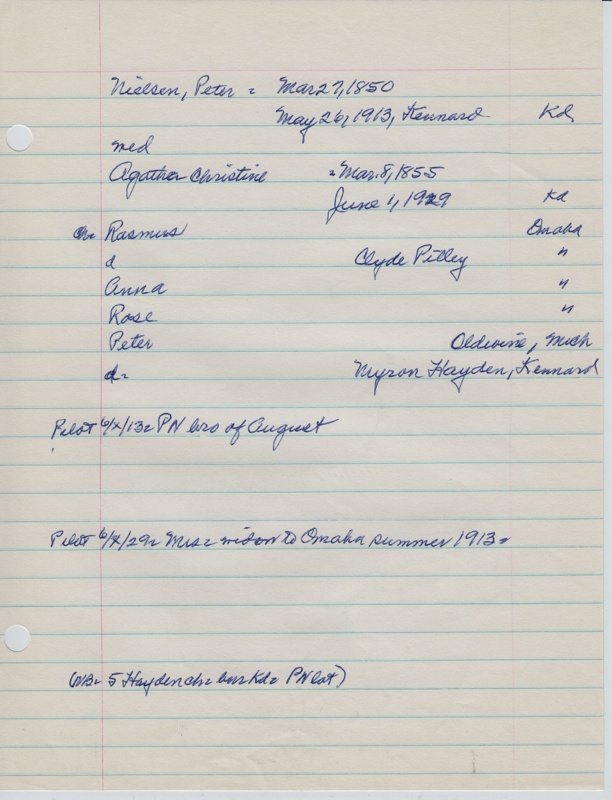 Nielsen, Peter = Mar 27, 1850
May 26, 1913, Kennard Kd
med
Agatha Christine = Mar. 8, 1855
June 1, 1929 Kd
ch= Rasmus Omaha
d Clyde Pilley "
Anna "
Rose "
Peter Mich
d= Myron Hayden, Kennard
Pilot 6/ /13= PN bro of August
Pilot 6/ /29= Mrs= widow to Omaha summer 1913=
(NB= 5 Hayden ch= bur Kd= PN lot)